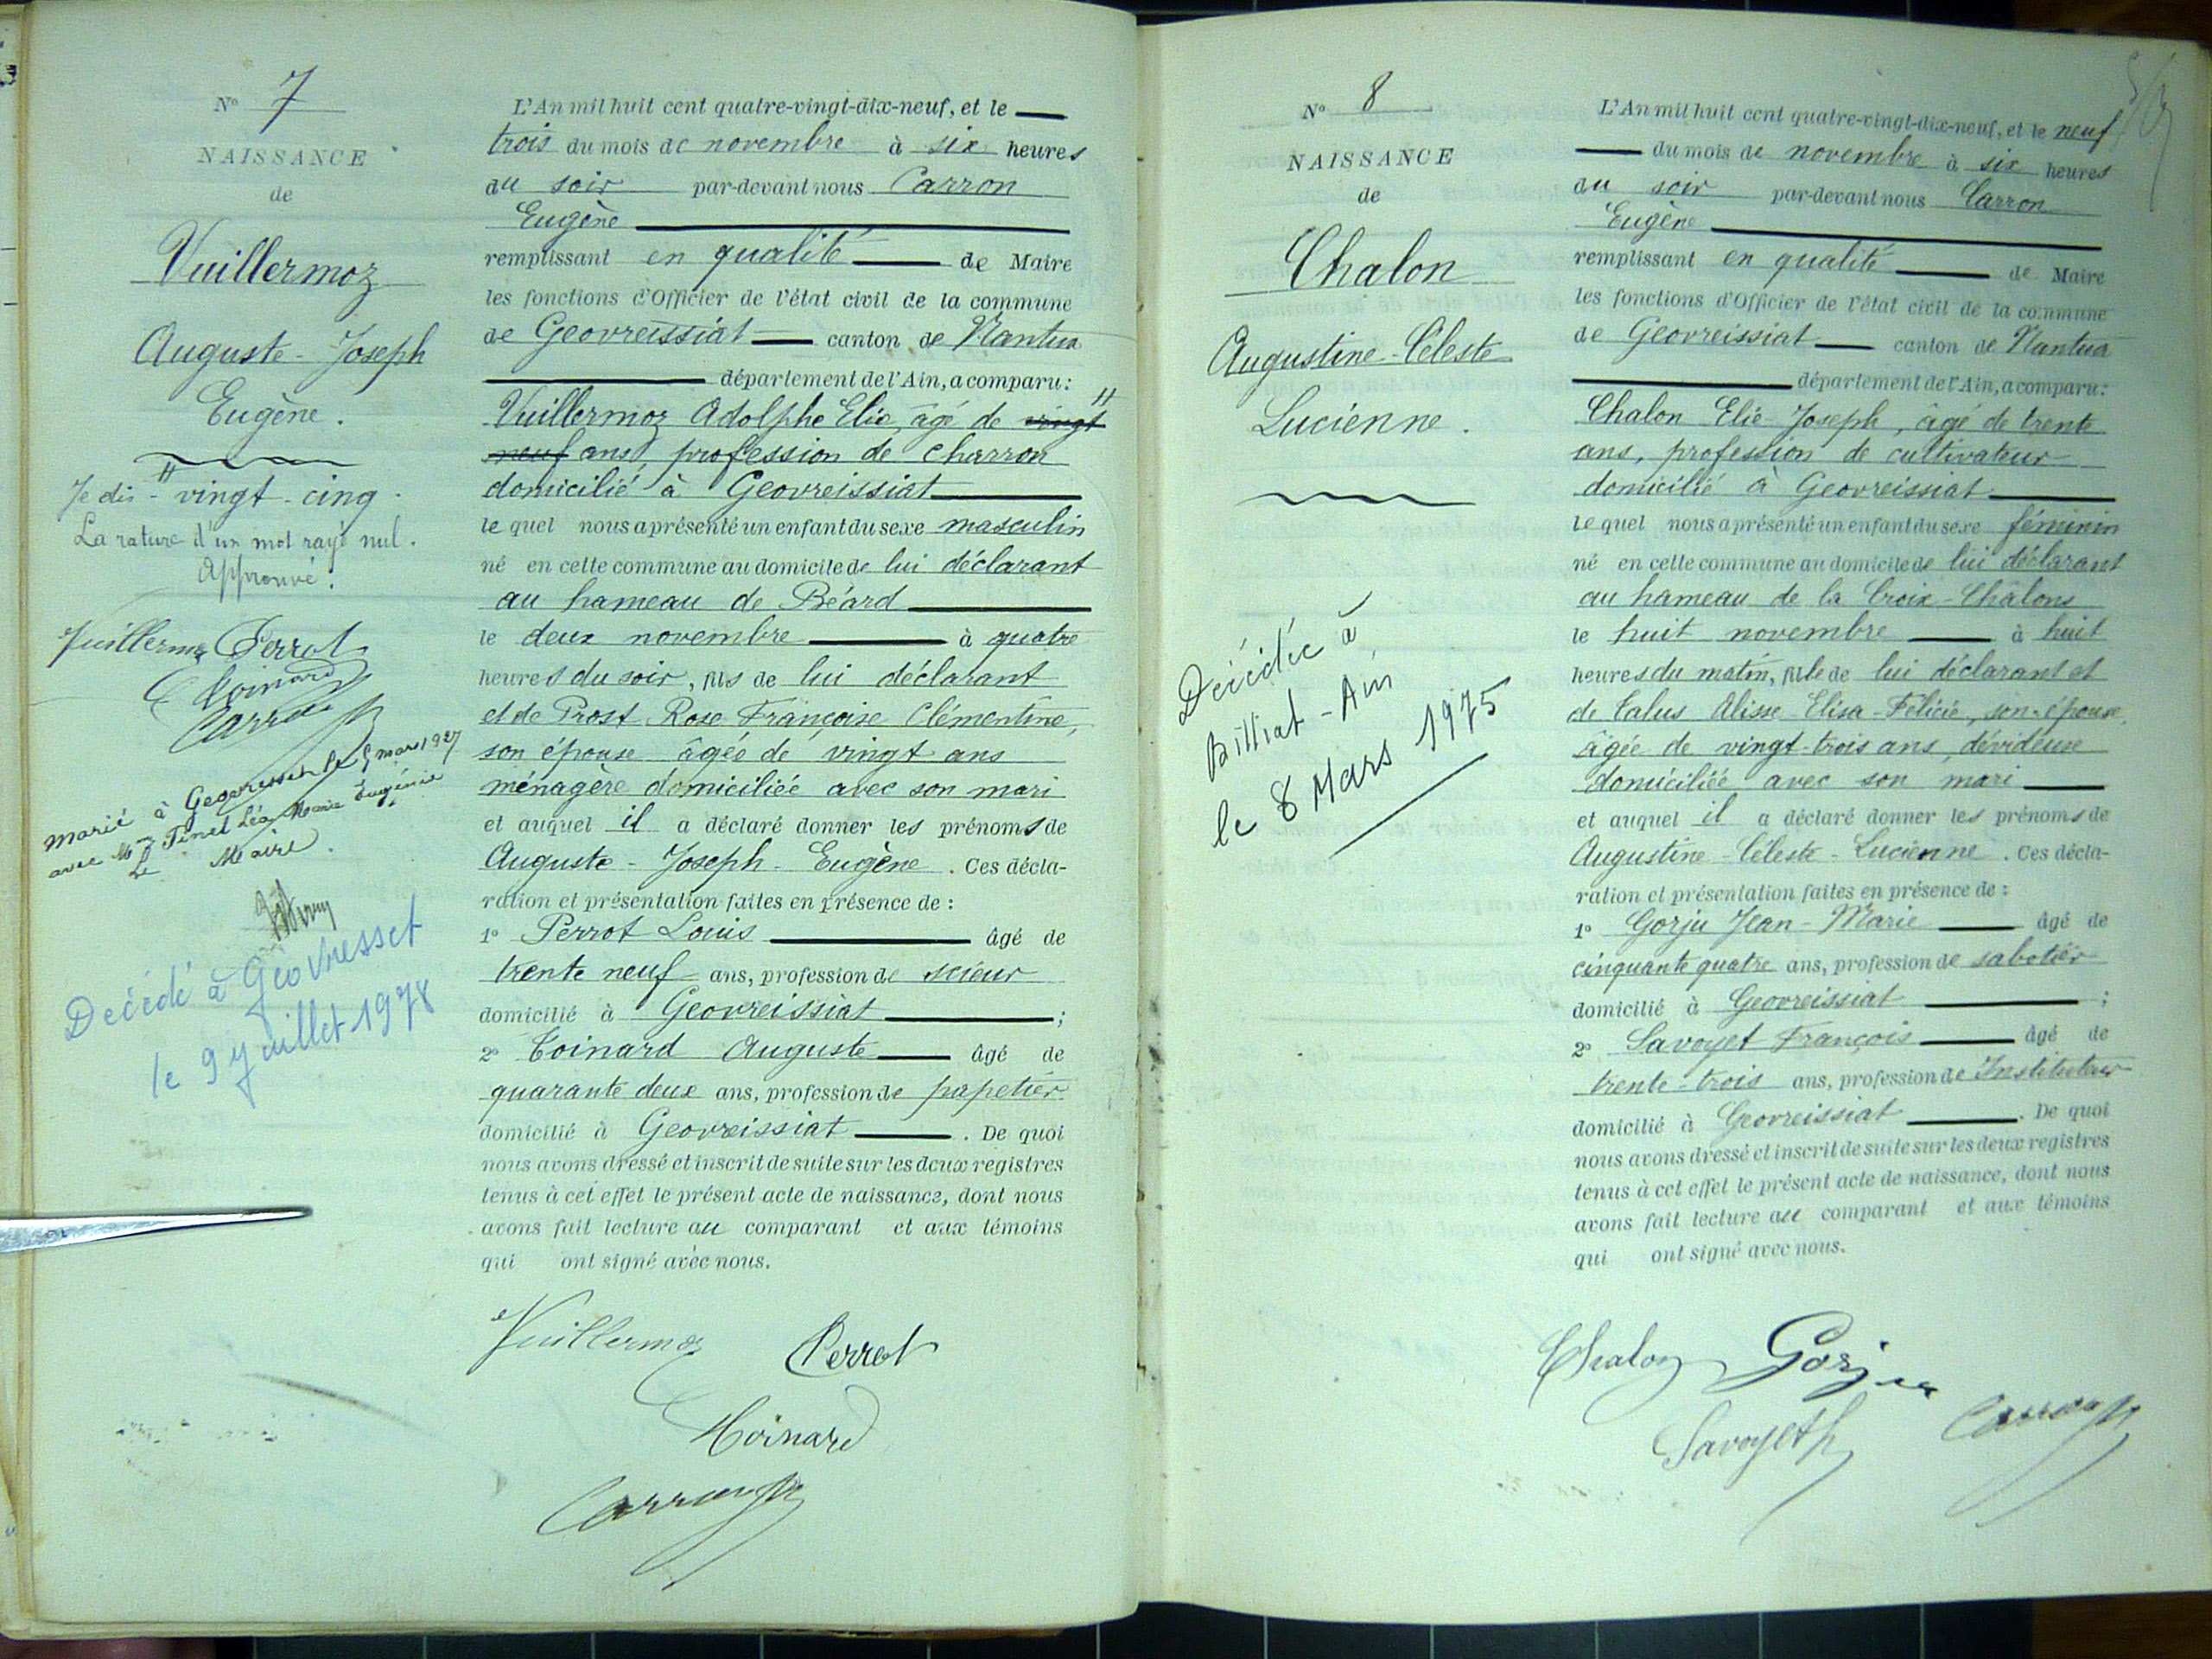 N° 7
NAISSANCE
de
Vuillermoz
Auguste - Joseph
Eugène.
Je dis - " vingt - cinq.
La rature d'un mot rayé nul.
Approuvé.
Vuillermoz Perrot
Coinard
Carron
marié à Geovresset le 5 mars 1927
avec Mlle Tinel Léa Marie Eugénie
Le Maire.
Décédé à Géovresset
le 9 juillet 1978
L'An mil huit cent quatre-vingt-dix-neuf, et le
trois du mois de novembre à six heures
du soir par-devant nous Carron
Eugène
remplissant en qualité de Maire
les fonctions d'Officier de l'état civil de la commune
de Geovreissiat canton de Nantua
département de l'Ain, a comparu:
Vuillermoz Adolphe Elie, âgé de vingt "
neuf ans, profession de charron
domicilié à Geovreissiat
lequel nous a présenté un enfant du sexe masculin
né en cette commune au domicile de lui déclarant
au hameau de Béard
le deux novembre à quatre
heures du soir, fils de lui déclarant
et de Prost Rose Françoise Clémentine,
son épouse âgée de vingt ans
ménagère domiciliée avec son mari
et auquel il a déclaré donner les prénoms de
Auguste - Joseph - Eugène. Ces décla-
ration et présentation faites en présence de :
1° Perrot Louis âgé de
trente neuf ans, profession de scieur
domicilié à Geovreissiat ;
2° Coinard Auguste âgé de
quarante deux ans, profession de papetier
domicilié à Geovreissiat. De quoi
nous avons dressé et inscrit de suite sur les deux registres
tenus à cet effet le présent acte de naissance, dont nous
avons fait lecture au comparant et aux témoins
qui ont signé avec nous.
Vuillermoz Perrot
Coinard
Carron
N° 8
NAISSANCE
de
Chalon
Augustine - Céleste
Lucienne.
Décédée à
Billiat - Ain
le 8 Mars 1975
L'An mil huit cent quatre-vingt-dix-neuf, et le neuf
du mois de novembre à six heures
du soir par-devant nous Carron
Eugène
remplissant en qualité de Maire
les fonctions d'Officier de l'état civil de la commune
de Geovreissiat canton de Nantua
département de l'Ain, a comparu:
Chalon Elie-Joseph, âgé de trente
ans, profession de cultivateur
domicilié à Geovreissiat
lequel nous a présenté un enfant du sexe féminin
né en cette commune au domicile de lui déclarant
au hameau de la Croix-Châlons
le huit novembre à huit
heures du matin, fille de lui déclarant et
de Calus Alisse Elisa-Félicie, son épouse,
âgée de vingt-trois ans, dévideuse
domiciliée avec son mari
et auquel il a déclaré donner les prénoms de
Augustine - Céleste - Lucienne. Ces décla-
ration et présentation faites en présence de :
1° Gorju Jean - Marie âgé de
cinquante quatre ans, profession de sabotier
domicilié à Geovreissiat ;
2° Savoyet François âgé de
trente - trois ans, profession de Instituteur
domicilié à Geovreissiat. De quoi
nous avons dressé et inscrit de suite sur les deux registres
tenus à cet effet le présent acte de naissance, dont nous
avons fait lecture au comparant et aux témoins
qui ont signé avec nous.
Chalon Gorju
Savoyet Carron